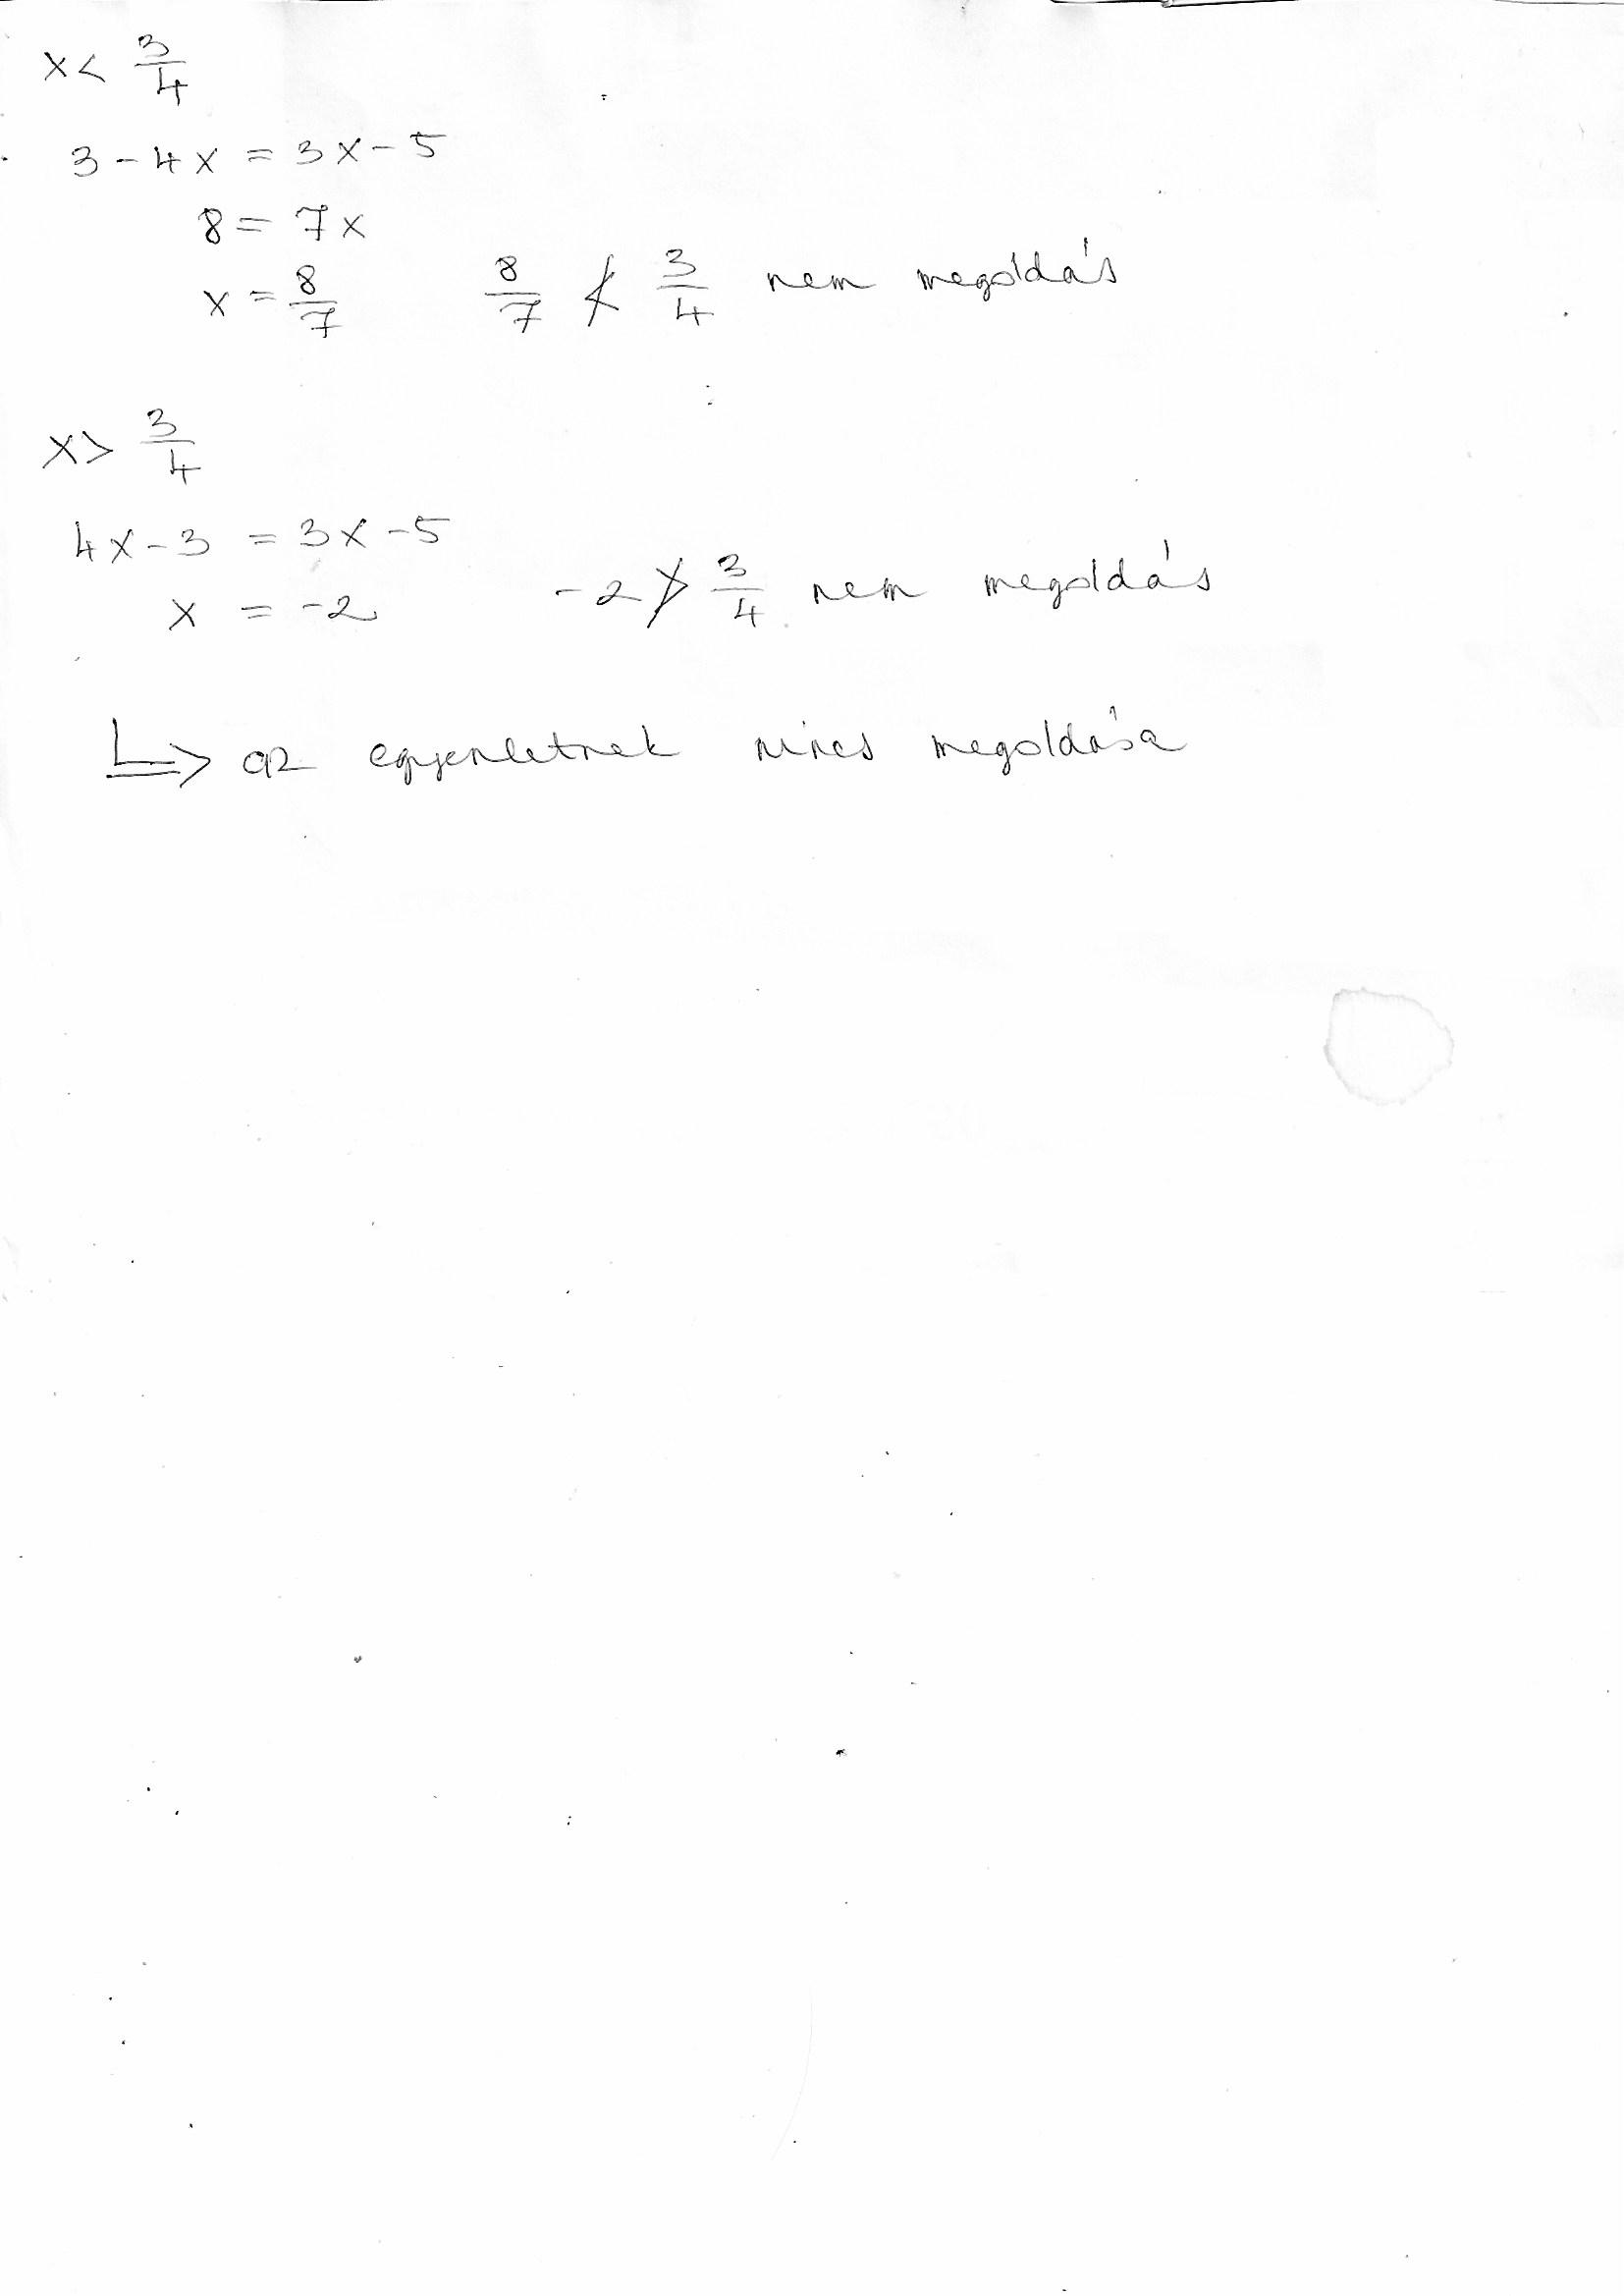 x < 3/4
3 - 4x = 3x - 5
8 = 7x
x = 8/7 8/7 ≮ 3/4 nem megoldás
x > 3/4
4x - 3 = 3x - 5
x = -2 -2 ≯ 3/4 nem megoldás
⇒ az egyenletnek nincs megoldása